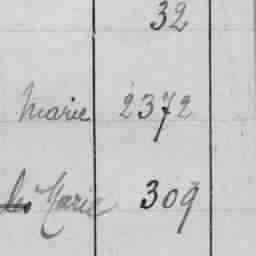 32
Marie 2372
Marie 309